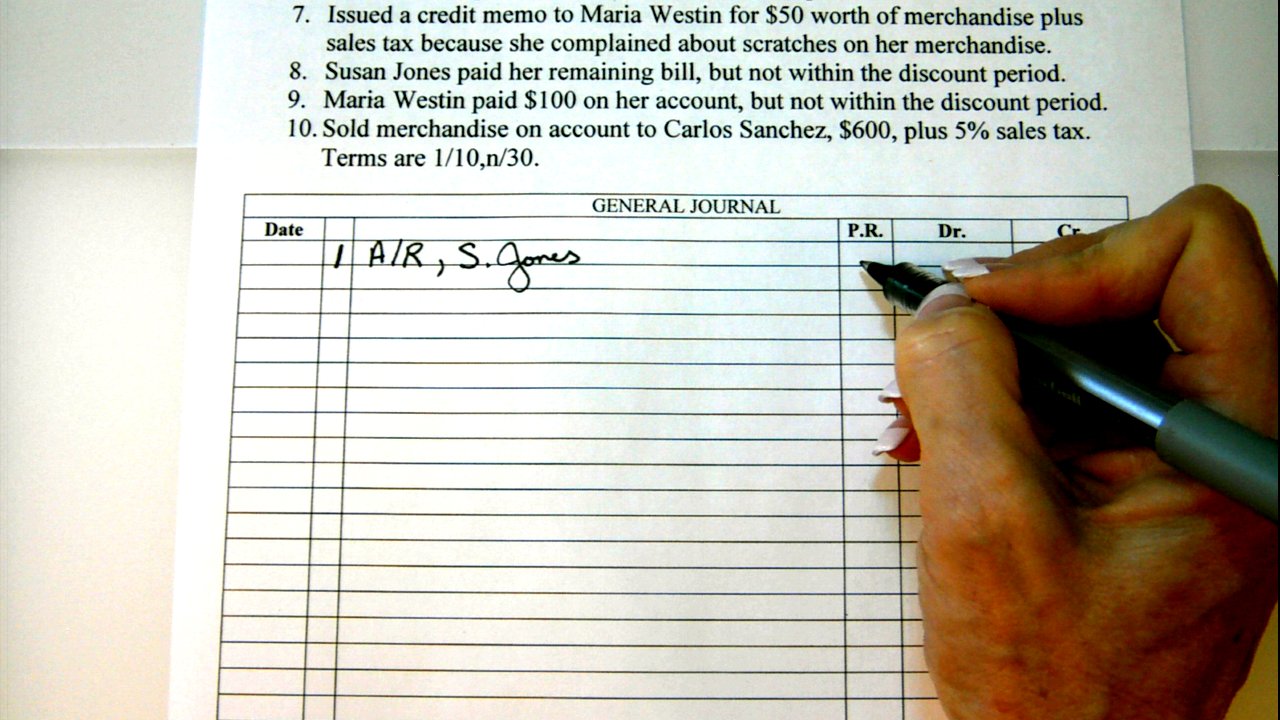 7. Issued a credit memo to Maria Westin for $50 worth of merchandise plus
sales tax because she complained about scratches on her merchandise.
8. Susan Jones paid her remaining bill, but not within the discount period.
9. Maria Westin paid $100 on her account, but not within the discount period.
10. Sold merchandise on account to Carlos Sanchez, $600, plus 5% sales tax.
Terms are 1/10,n/30.
GENERAL JOURNAL
Date P.R. Dr. Cr.
1 A/R, S. Jones